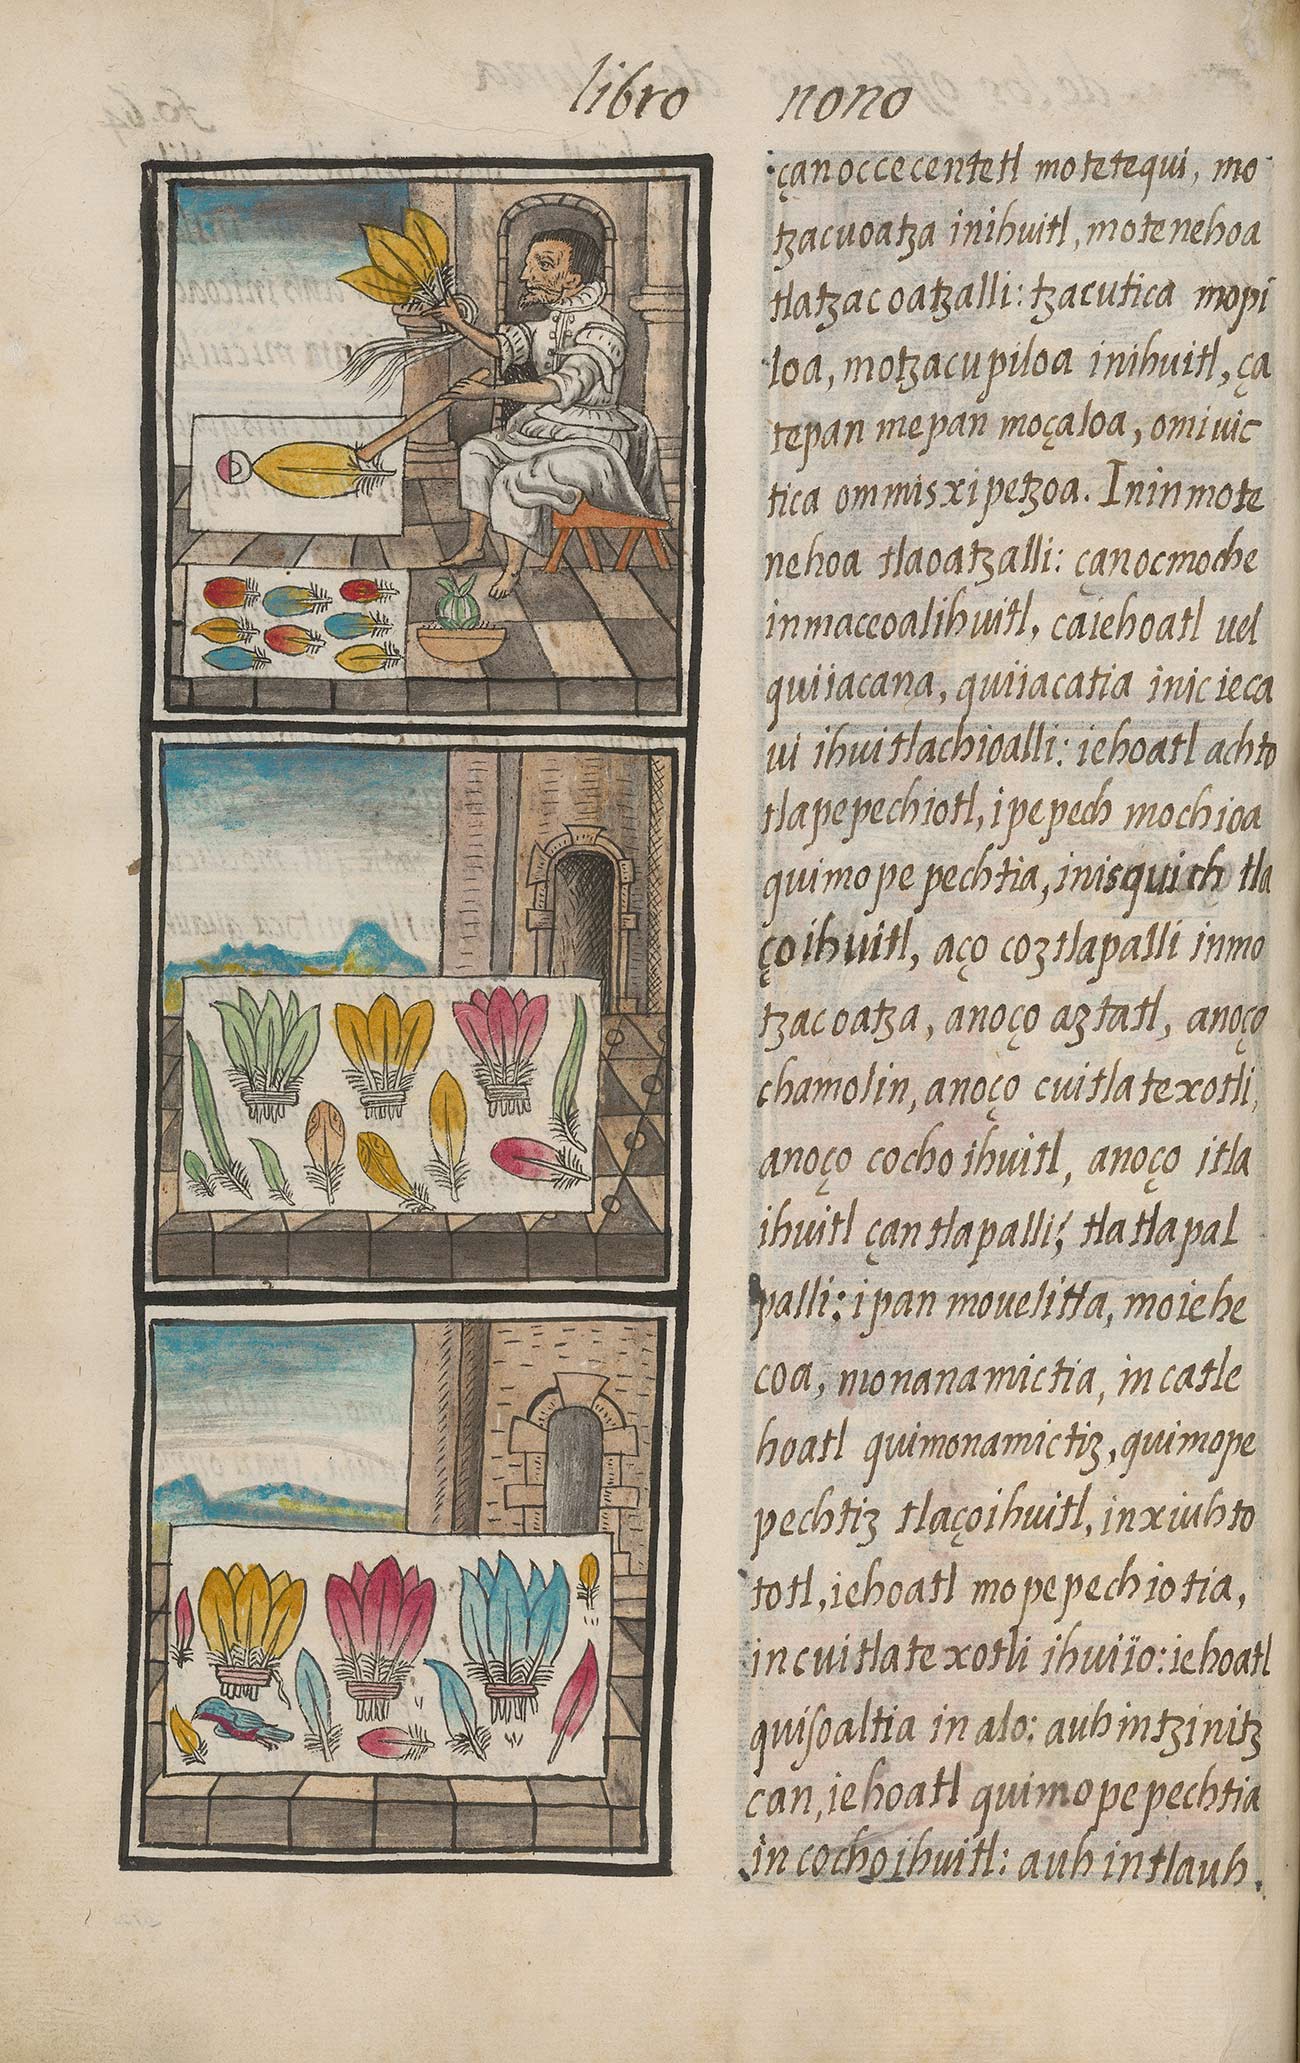 libro nono
çanoccecentetl motetequi, mo
tzacuoatza inihuitl, motenehoa
tlatzacoatzalli: tzacutica mopi
loa, motzacupiloa inihuitl, ça
tepan mepan moçaloa, omiuic
tica ommisxipetzoa. Ininmote
nehoa tlaoatzalli: çanocmoche
inmaceoalihuitl, caiehoatl uel
quiiacana, quiiacatia inicieca
ui ihuitlachioalli: iehoatl achto
tlapepechiotl, ipepech mochioa
quimopepechtia, inisquich tla
çoihuitl, aço coztlapalli inmo
tzacoatza, anoço aztatl, anoço
chamolin, anoço cuitlatexotli,
anoço cochoihuitl, anoço itla
ihuitl çantlapalli, tlatlapal
palli: ipan mouelitta, moiehe
coa, monanamictia, incatle
hoatl quimonamictiz, quimope
pechtiz tlaçoihuitl, inxiuhto
totl, iehoatl mopepechiotia,
incuitlatexotli ihuiio: iehoatl
quisoaltia in alo: auh intzinitz
can, iehoatl quimopepechtia
in cochoihuitl: auh intlauh.